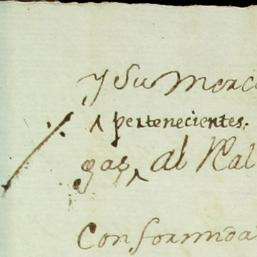 y Su Merc
pertenecientes.
gas, al Real
Conformida